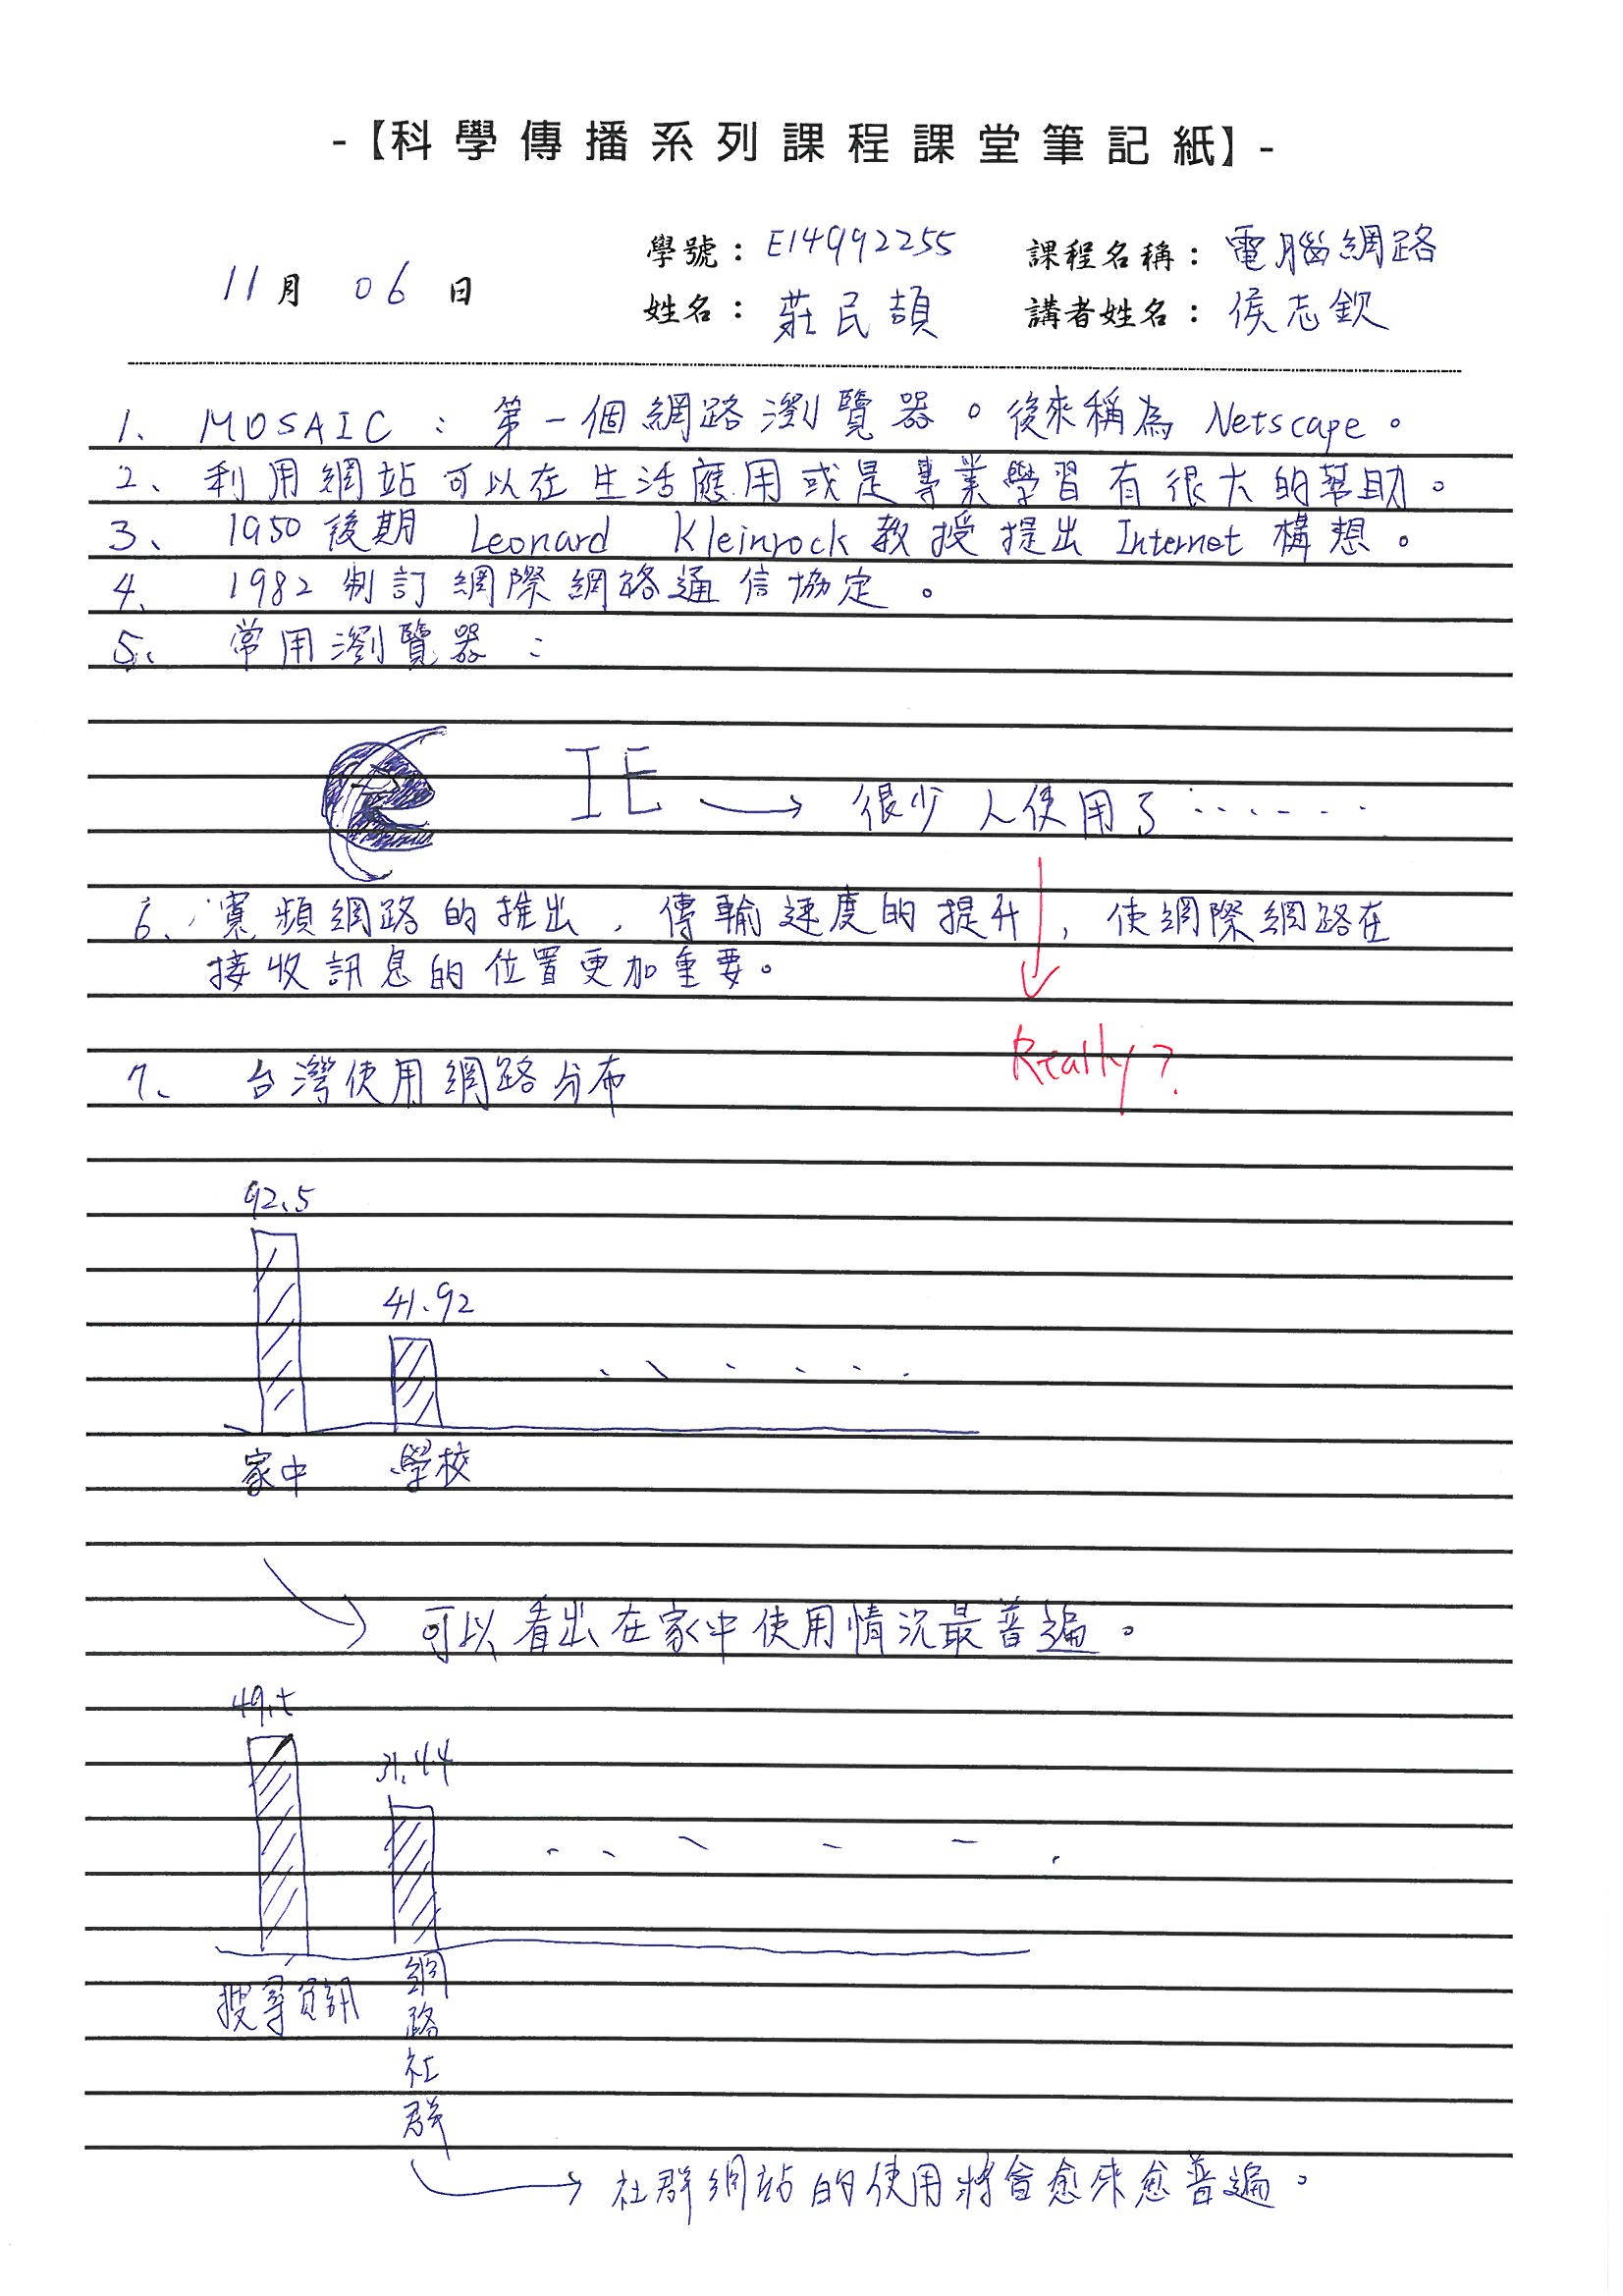 -【科學傳播系列課程課堂筆記紙】-
學號：E14992255 課程名稱：電腦網路
11月 06日 姓名：莊民頡 講者姓名：侯志欽
1、MOSAIC：第一個網路瀏覽器。後來稱為 Netscape。
2、利用網站可以在生活應用或是專業學習有很大的幫助。
3、1950後期 Leonard Kleinrock 教授提出 Internet 構想。
4、1982 制訂網際網路通信協定。
5、常用瀏覽器：
IE → 很少人使用了……
6、寬頻網路的推出，傳輸速度的提升，使網際網路在
接收訊息的位置更加重要。
Really?
7、台灣使用網路分布
92.5
41.92
家中 學校
可以看出在家中使用情況最普遍。
31.44
搜尋資訊 網路社群
→ 社群網站的使用將會愈來愈普遍。